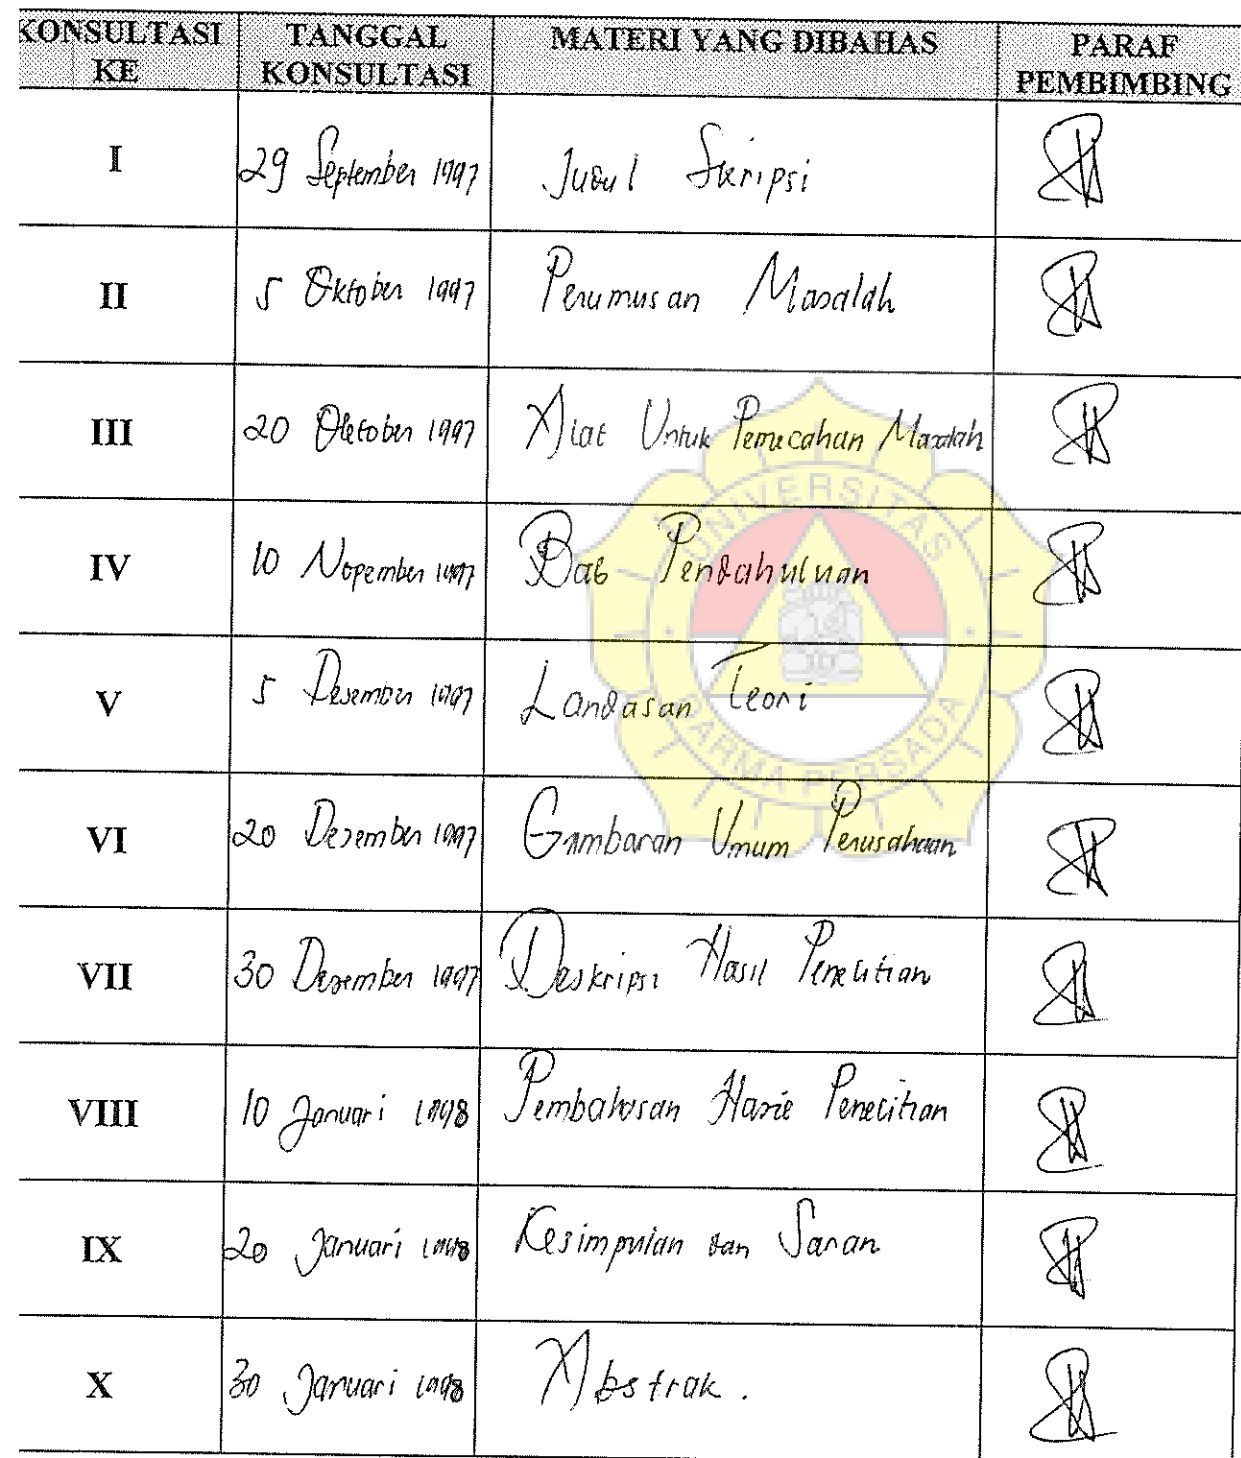 KONSULTASI KE | TANGGAL KONSULTASI | MATERI YANG DIBAHAS | PARAF PEMBIMBING
I | 29 September 1997 | Judul Skripsi
II | 5 Oktober 1997 | Perumusan Masalah
III | 20 Oktober 1997 | Alat Untuk Pemecahan Masalah
IV | 10 Nopember 1997 | Bab Pendahuluan
V | 5 Desember 1997 | Landasan Teori
VI | 20 Desember 1997 | Gambaran Umum Perusahaan
VII | 30 Desember 1997 | Deskripsi Hasil Penelitian
VIII | 10 Januari 1998 | Pembahasan Hasil Penelitian
IX | 20 Januari 1998 | Kesimpulan dan Saran
X | 30 Januari 1998 | Abstrak.
UNIVERSITAS
DARMA PERSADA